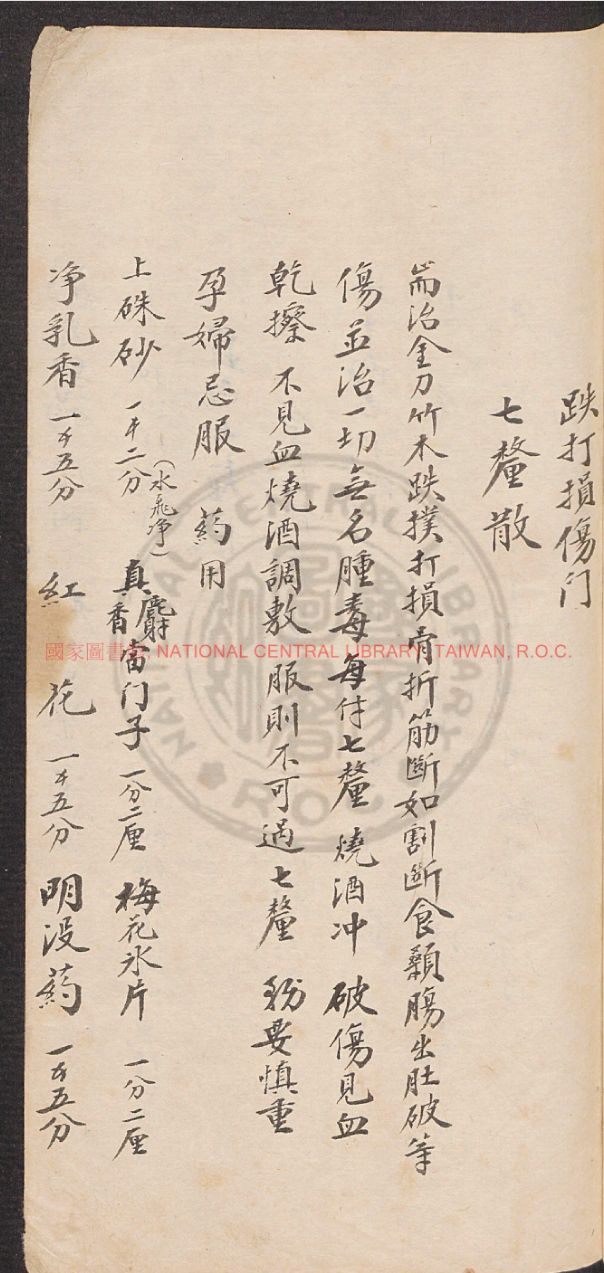 跌打損傷门
七釐散
耑治金刀竹木跌撲打損骨折筋斷如割斷食顙腸出肚破等
傷並治一切無名腫毒每付七釐 燒酒冲 破傷見血
乾擦 不見血燒酒調敷 服則不可過七釐 務要慎重
孕婦忌服 葯用
上硃砂 一千二分(水飛净) 真麝香當门子 一分二厘 梅花氷片 一分二厘
净乳香 一千五分 紅花 一千五分 明没葯 一千五分
國家圖書館 NATIONAL CENTRAL LIBRARY, TAIWAN, R.O.C.